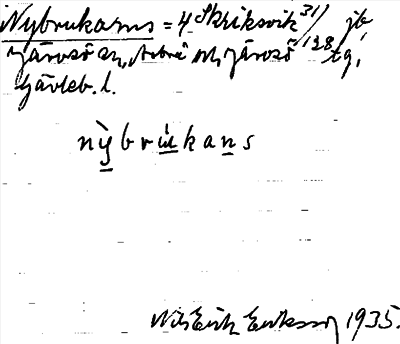 Nybrukarns = 4 Skriksvik 31/128 jb,
Järvsö sn, Arbrå och Järvsö tg,
Gävleb. l.
nỳbrùkans
Nils Erik Eriksson 1935.